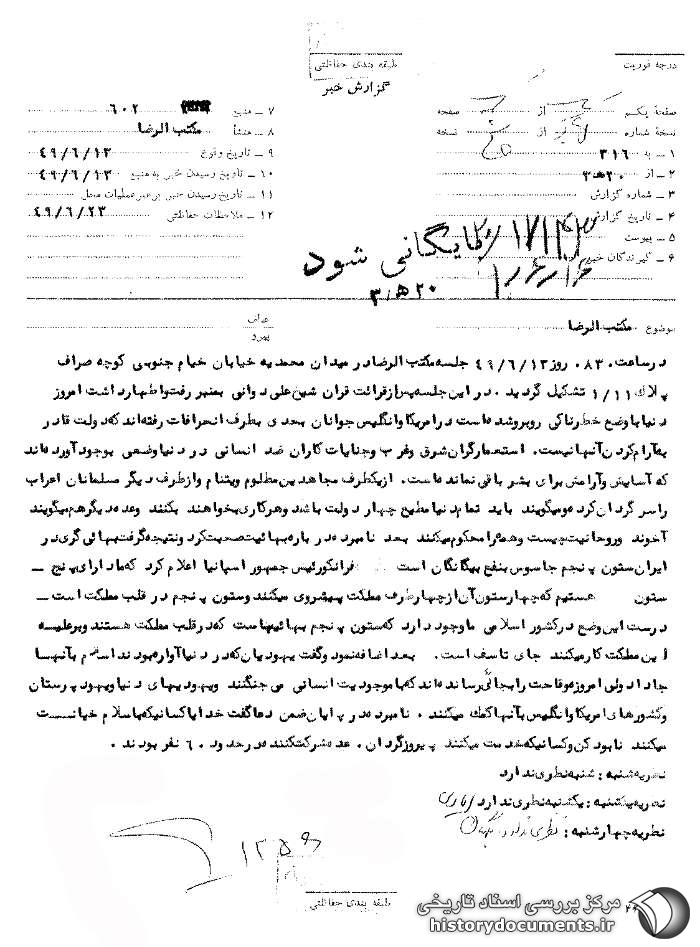 درجه فوریت
طبقه بندی حفاظتی
گزارش خبر
صفحهٔ یکم از صفحه
نسخهٔ شماره از نسخه
۱ ــ به ۳۱۶
۲ ــ از ۲۰ ه ۳
۳ ــ شماره گزارش
۴ ــ تاریخ گزارش
۵ ــ پیوست
۶ ــ گیرندگان خبر
۷ ــ منبع ۶۰۲
۸ ــ منشأ مکتب الرضا
۹ ــ تاریخ وقوع ۴۹/۶/۱۳
۱۰ ــ تاریخ رسیدن خبر به منبع ۴۹/۶/۱۳
۱۱ ــ تاریخ رسیدن خبر به رهبر عملیات محل
۱۲ ــ ملاحظات حفاظتی ۴۹/۶/۲۳
بایگانی شود
۲۰ ه ۳
موضوع مکتب الرضا
عطف
پیرو
در ساعت ۰۸۳۰ روز ۴۹/۶/۱۳ جلسه مکتب الرضا در میدان محمدیه خیابان خیام جنوبی کوچه صراف
پلاک ۱/۱۱ تشکیل گردید . در این جلسه پس از قرائت قران شیخ علی دوانی بمنبر رفت و اظهار داشت امروز
دنیا با وضع خطرناکی روبرو شده است در امریکا و انگلیس جوانان بحدی بطرف انحرافات رفته اند که دولت قادر
به آرام کردن آنها نیست. استعمارگران شرق و غرب و جنایات کاران ضد انسانی در دنیا وضعی بوجود آورده اند
که آسایش و آرامش برای بشر باقی نمانده است. از یکطرف مجاهدین مظلوم ویتنام و از طرف دیگر مسلمانان اعراب
را سرگردان کرده و میگویند باید تمام دنیا مطیع چهار دولت باشد و هر کاری بخواهند بکنند وعده دیگر هم میگویند
آخوند و روحانیت چیست و همه را محکوم میکنند بعد نامبرده در باره بهائیت صحبت کرد و نتیجه گرفت بهائی گری در
ایران ستون پنجم جاسوس بنفع بیگانگان است فرانکو رئیس جمهور اسپانیا اعلام کرد که ما دارای پنج ــ
ستون هستیم که چهار ستون آن از چهار طرف مملکت پیشروی میکنند و ستون پنجم در قلب مملکت است ــ
درست این وضع در کشور اسلامی ما وجود دارد که ستون پنجم بهائیهاست که در قلب مملکت هستند و برعلیه
این مملکت کار میکنند جای تاسف است. بعد اضافه نمود و گفت یهودیان که در دنیا آواره بودند اسلام بآنها
جا داد ولی امروزه وقاحت را بجائی رسانده اند که با موجودیت انسانی می جنگند و یهودیهای دنیا و یهود پرستان
و کشورهای امریکا و انگلیس بآنها کمک میکنند . نامبرده در پایان ضمن دعا گفت خدایا کسانیکه باسلام خیانت
میکنند نابود کن و کسانیکه خدمت میکنند پیروز گردان . عده شرکت کننده در حدود ۶۰ نفر بودند .
نظریه شنبه : شنبه نظری ندارد
نظریه یکشنبه : یکشنبه نظری ندارد
نظریه چهارشنبه : نظری ندارد
طبقه بندی حفاظتی
مرکز بررسی اسناد تاریخی
historydocuments.ir